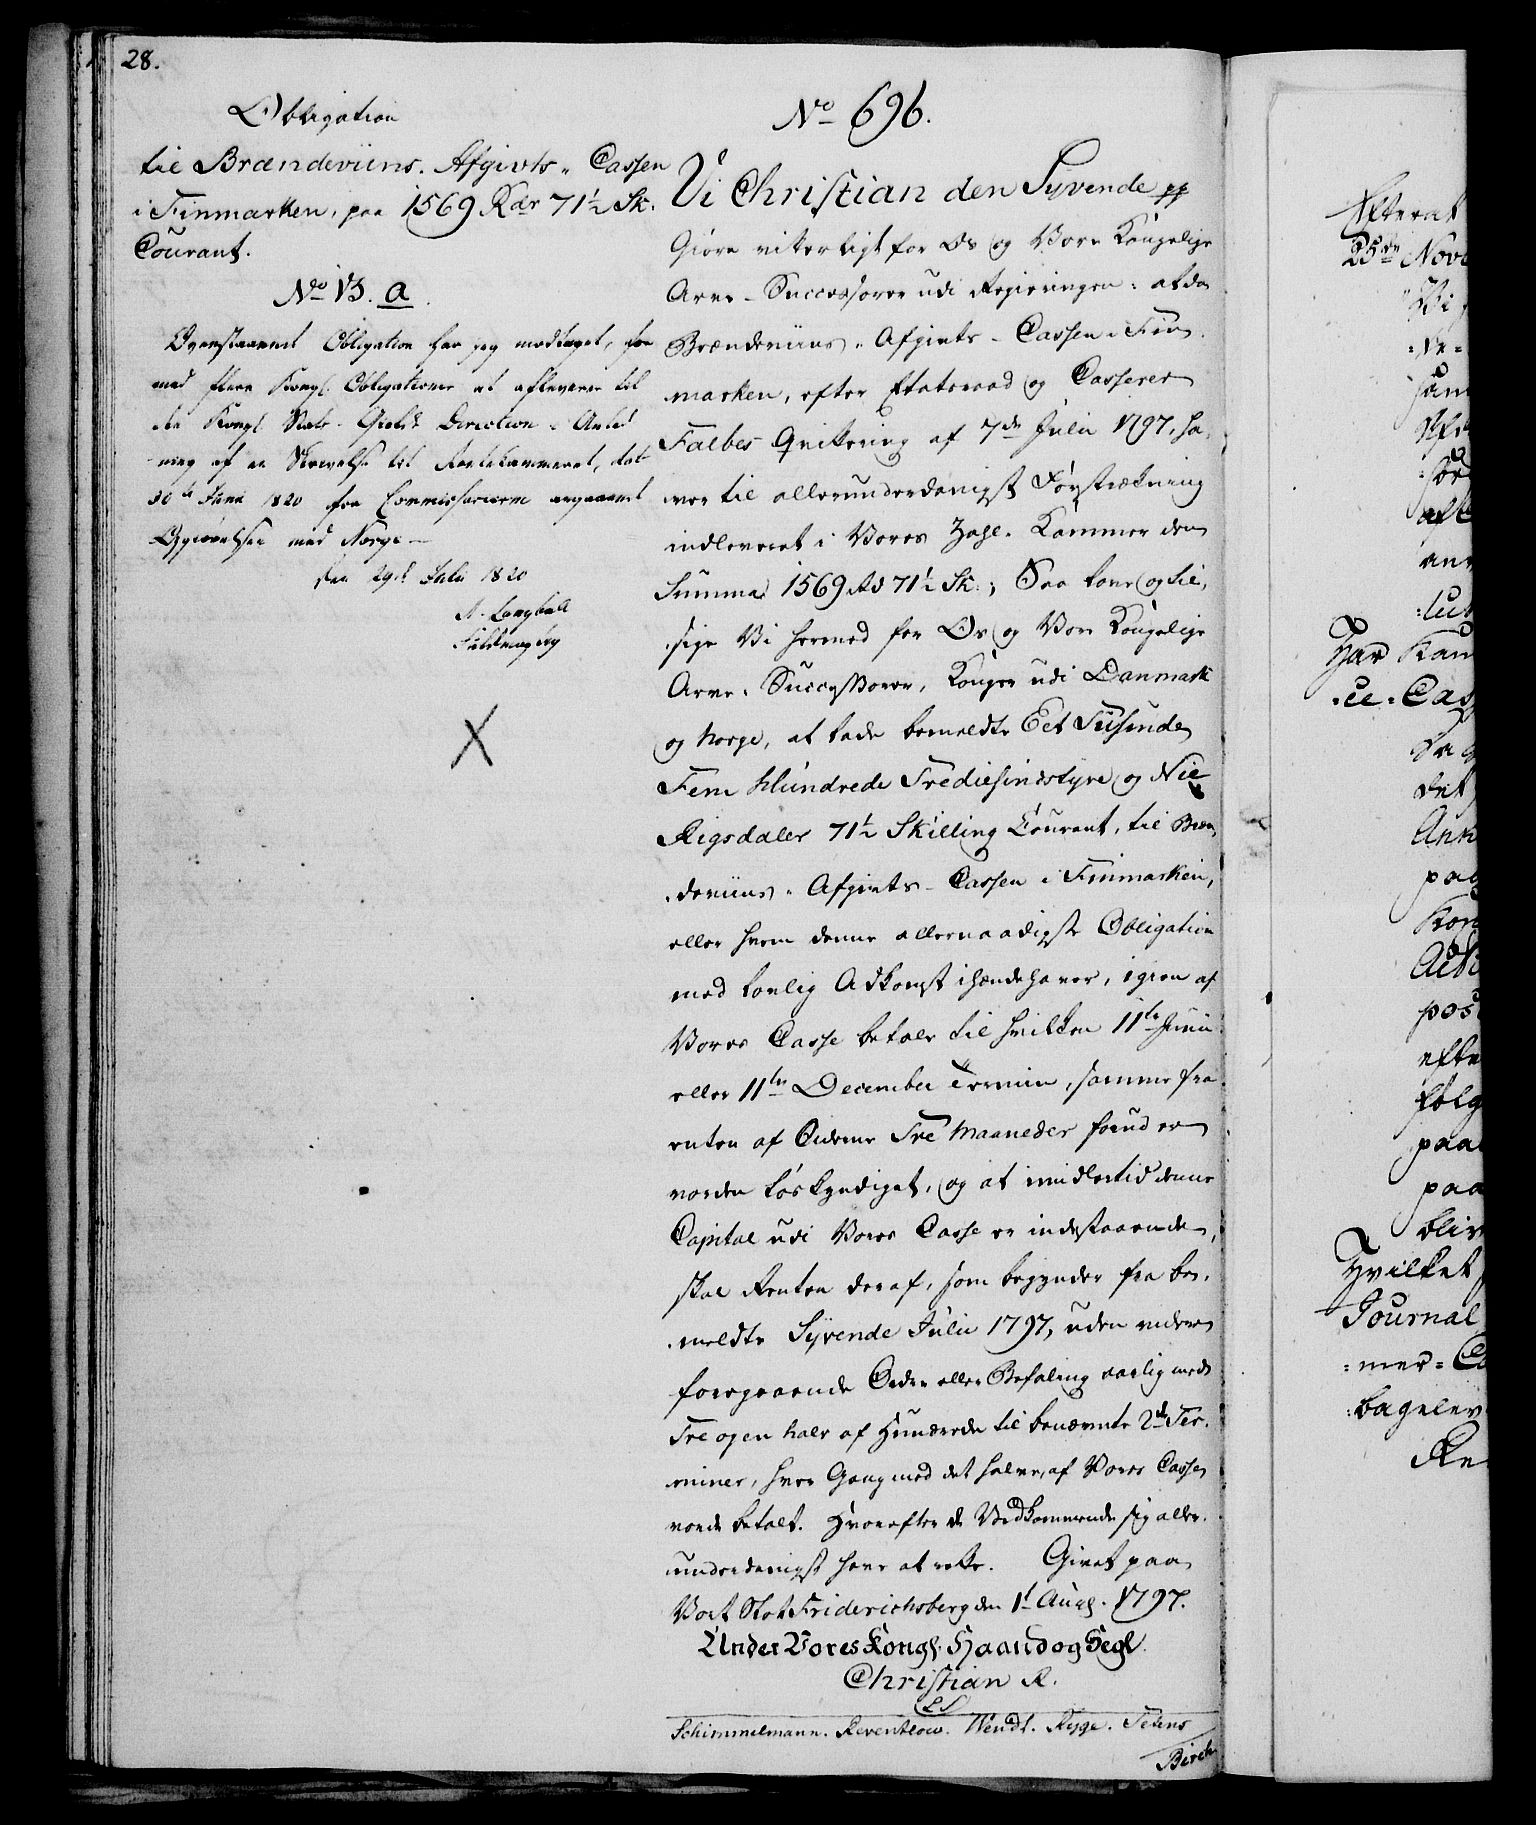 28.
Obligation
til Brændeviins-Afgivts-Cassen
i Finmarken, paa 1569 Rdr 71½ Sk.
Courant.
No 13. a.
Ovenstaaende Obligation har jeg modtaget, for
med flere Kongl. Obligationer at aflevere til
den Kongl. Stats-Gields Direction i Anled-
ning af en Skrivelse til Rentekammeret, dat
30te Juni 1820 fra Commissarierne angaaende
Opgiørelsen med Norge.
den 29de Julii 1820
No 696.
Vi Christian den Syvende pp
Giøre vitterligt for Os og Vore Kongelige
Arve-Successorer udi Regieringen: at da
Brændeviins-Afgivts-Cassen i Fin-
marken, efter Etatsraad og Casserer
Falbes Qvittering af 7de Julii 1797, ha-
ver til allerunderdanigst Forstrækning
indleveret i Vores Zahl-Kammer den
Summa 1569 Rd 71½ Sk.; Saa love og til-
sige Vi hermed for Os og Vore Kongelige
Arve-Successorer, Konger udi Danmark
og Norge, at lade bemeldte Eet Tusinde
Fem Hundrede Trediesindstyve og Nie
Rigsdaler 71½ Skilling Courant, til Bræn-
deviins-Afgivts-Cassen i Finmarken,
eller hvem denne allernaadigste Obligation
med lovlig Adkomst ihændehaver, igien af
Vores Casse betale til hvilken 11te Junii
eller 11te December Termin, samme fra
enten af Siderne Tre Maaneder forud er
vorden løskyndiget, og at imidlertid denne
Capital udi Vores Casse er indestaaende,
skal Renten deraf, som begynder fra be-
meldte Syvende Julii 1797, uden videre
foregaaende Ordre eller Befaling aarlig med
Tre og en halv af Hundrede til benævnte 2de Ter-
miner, hver Gang med det halve, af Vores Casse
vorde betalt. Hvorefter de Vedkommende sig aller-
underdanigst have at rette. Givet paa
Vort Slot Friderichsberg den 1t Aug. 1797.
Under Vores Kongl. Haand og Segl.
Christian R.
LS
Schimmelmann. Reventlow. Wendt. Rygge. Tetens
Birch
Efterat
25de Nov
Vi
Har
Cas
paa
efte
følg
paa
paa
bliv
Hvilket
Journal
=mer=
bagelev
Re